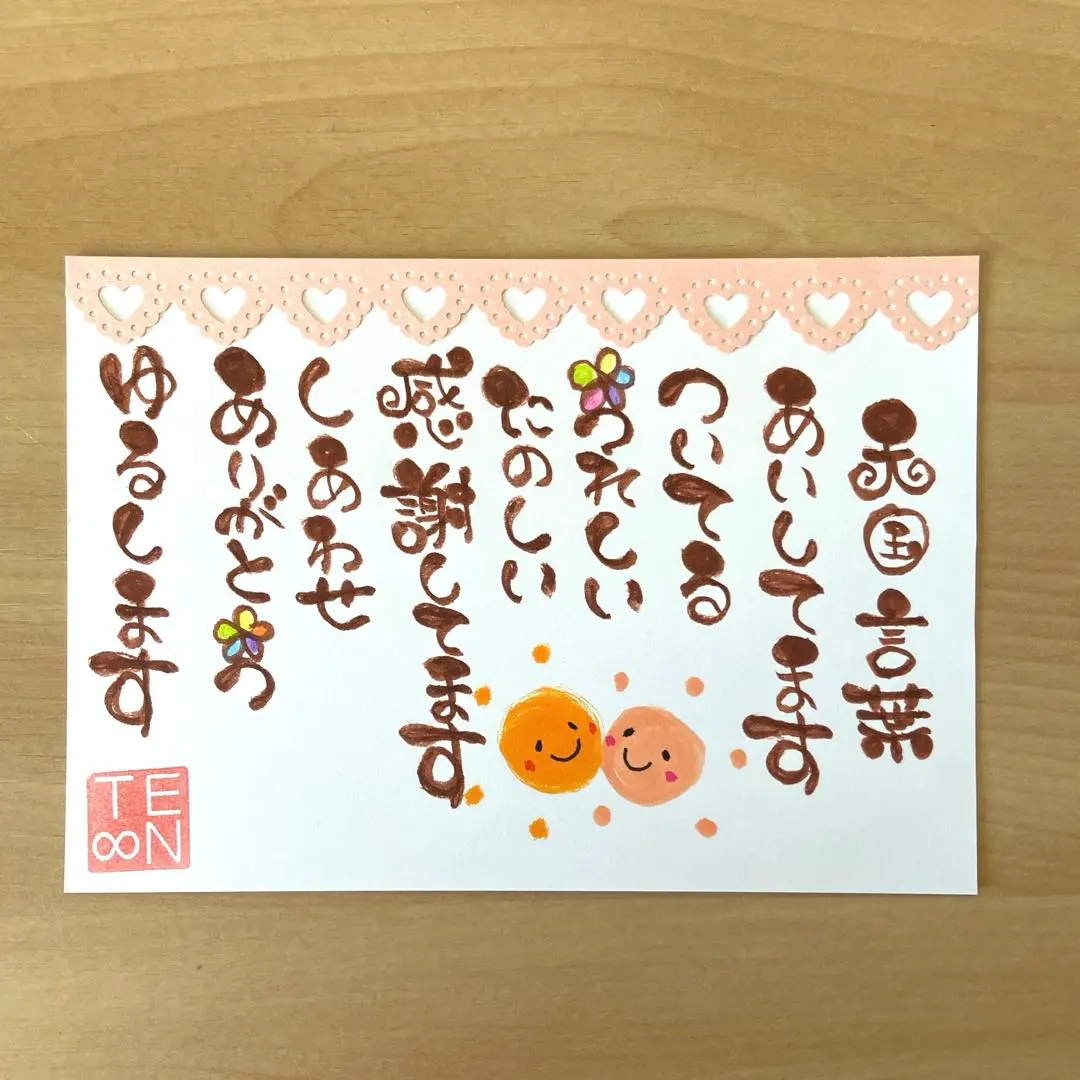 天国言葉
あいしてます
ついてる
うれしい
たのしい
感謝してます
しあわせ
ありがとう
ゆるします
TE
∞N